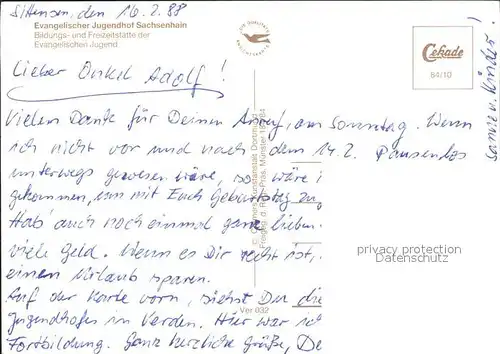 Sittensen, den 16.2.88
Evangelischer Jugendhof Sachsenhain
Bildungs- und Freizeitstätte der
Evangelischen Jugend
Cekade
84/10
Lieber Onkel Adolf!
Vielen Dank für Deinen Anruf, am Sonntag. Wenn
ich nicht vor und nach dem 14.2. Pausenlos
unterwegs gewesen wäre, so wäre i
gekommen, um mit Euch Geburtstag zu
Hab' auch noch einmal ganz lieben
viele Geld. Wenn es Dir recht ist,
einen Urlaub sparen.
Auf der Karte vorn, siehst Du die
Jugendhofes in Verden. Hier war ich
Fortbildung. Ganz herzliche Grüße, De
Ver 032
privacy protection
Datenschutz